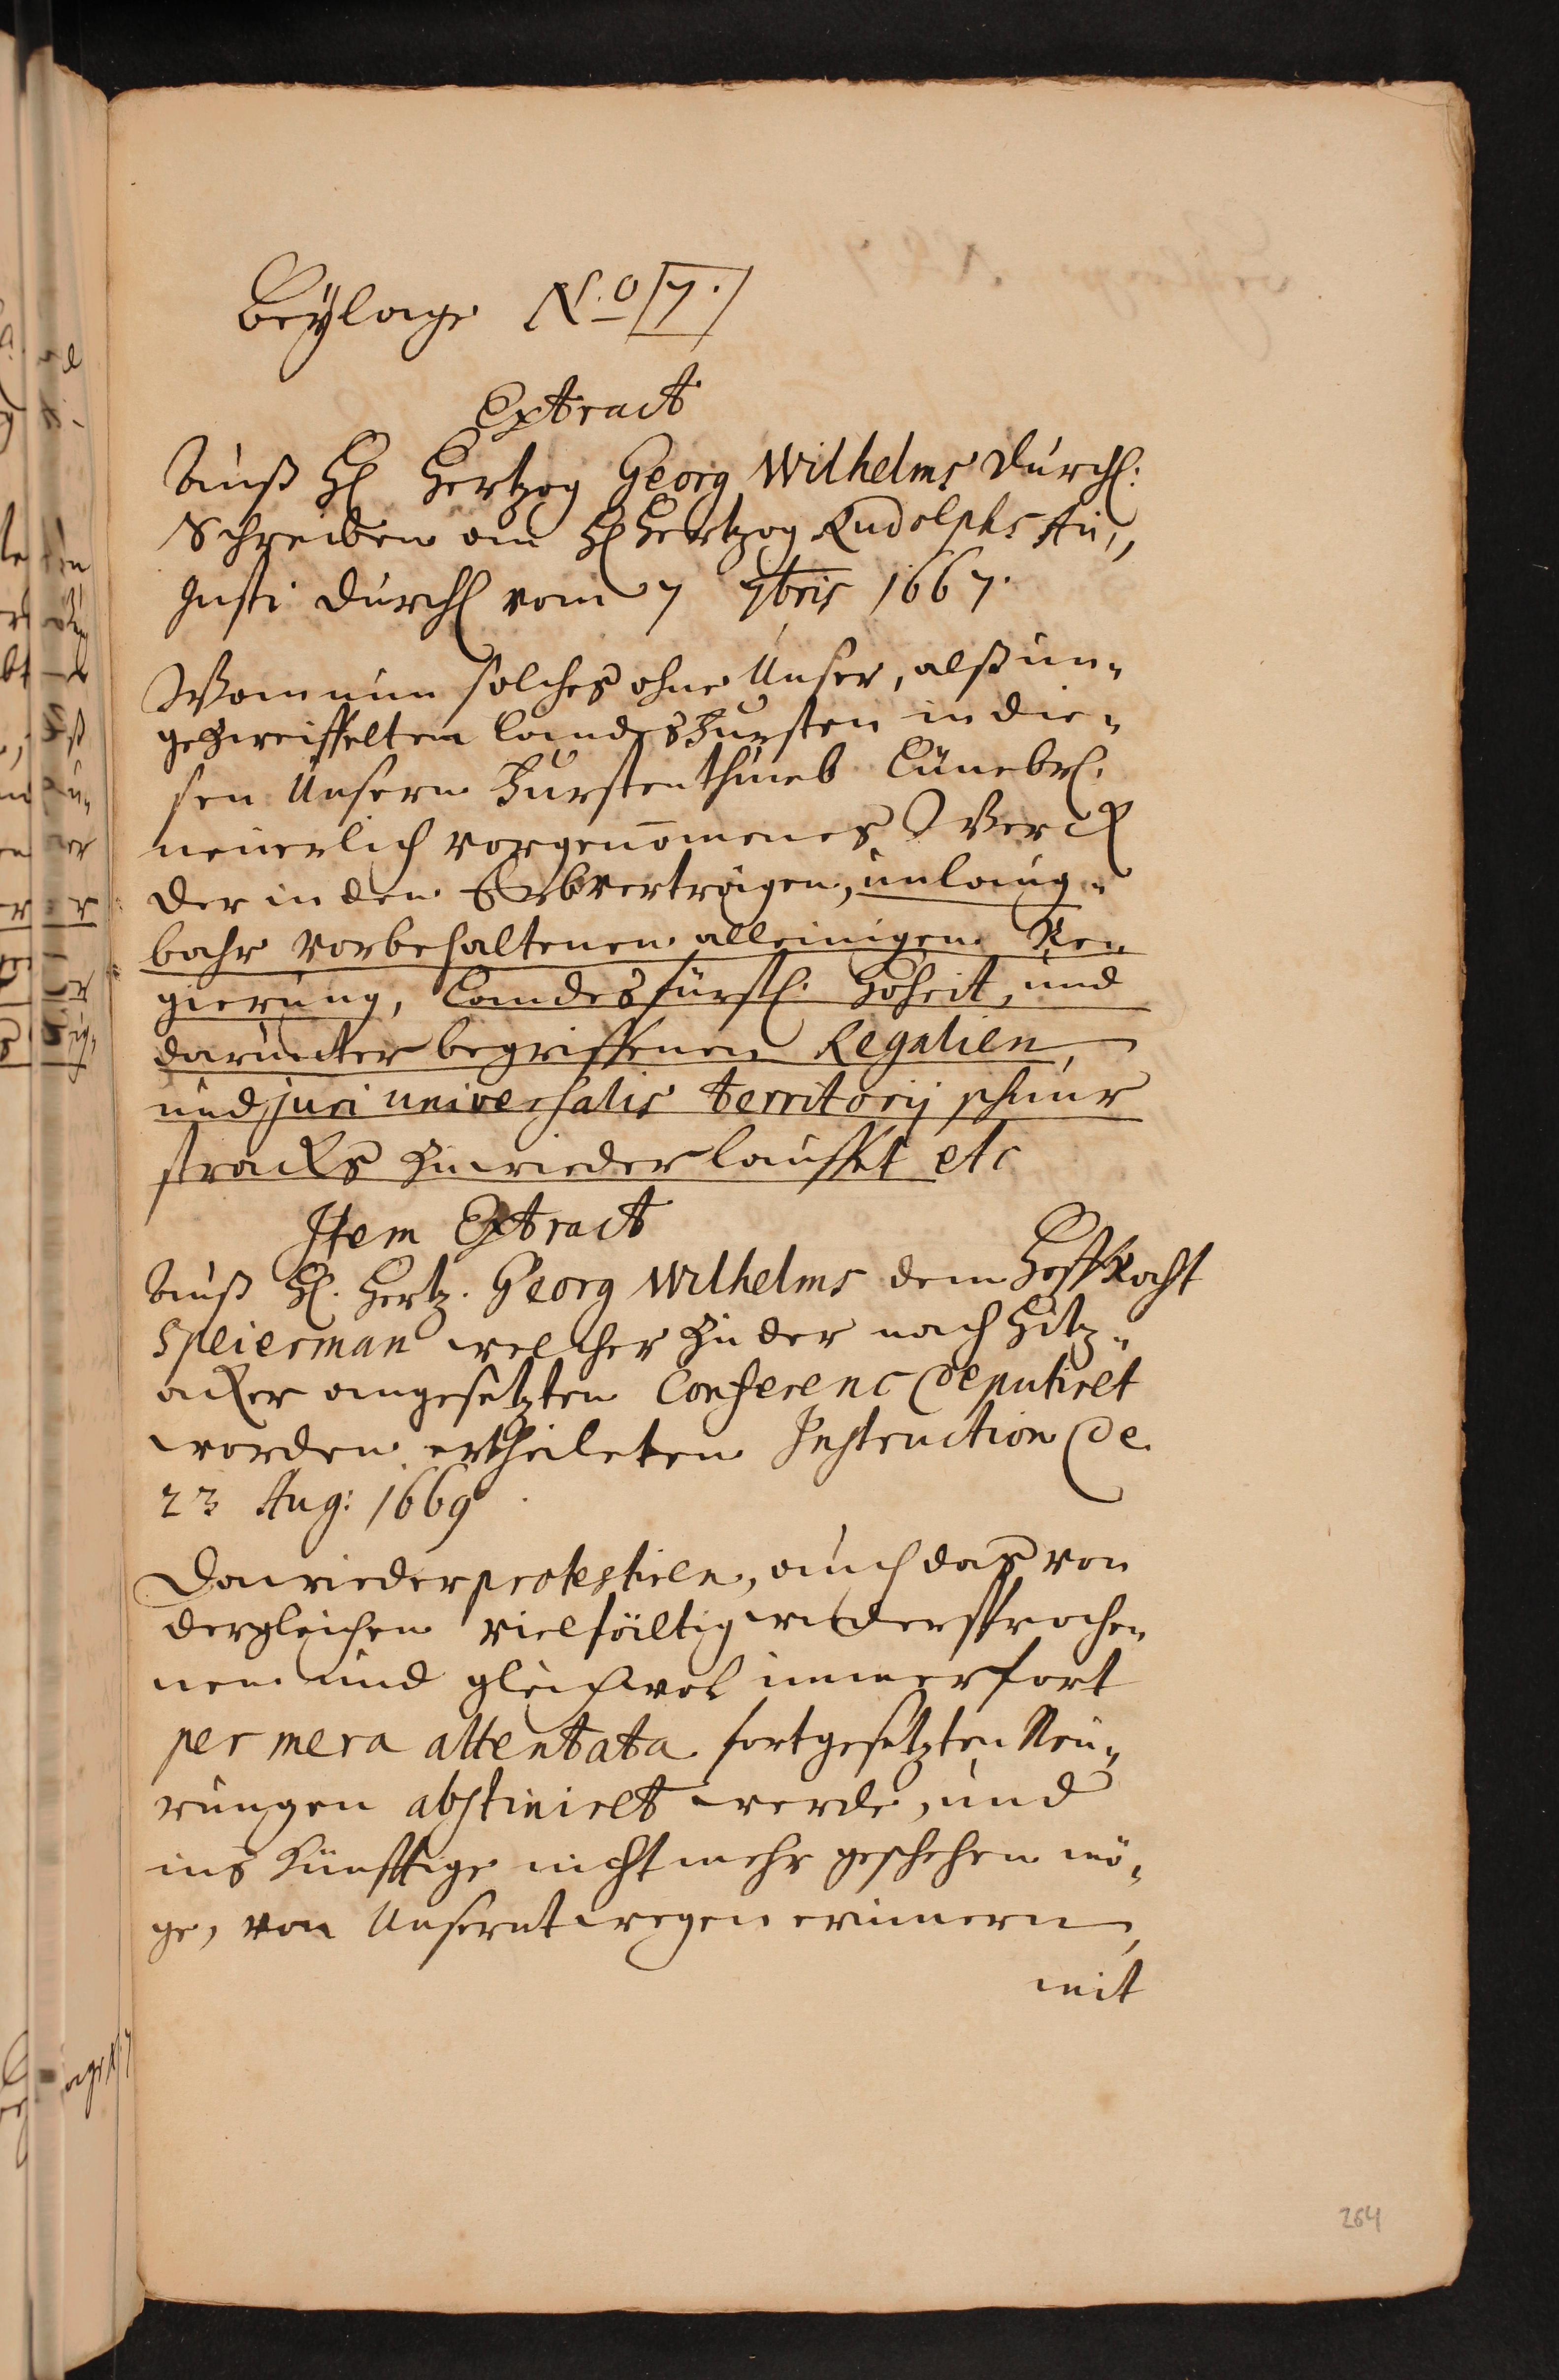 Beÿlage N.o 7.
Extract
Auß H Hertzog Georg Wilhelms Durchl:
Schreiben an H Hertzog Rudolphs Au„
gusti Durchl vom 7 7bris 1667.
Wann nun solches ohne Unser, alß un„
gezweiffelten LandesFursten in die„
sen Unserm Furstenthumb Lünebl.
neuerlich vorgenom̄enes Werck
der in den Erbverträgen, unlaug„
bahr vorbehaltenen alleinigen Re„
gierung, Landesfürstl. Hoheit, und
darunter begriffenen Regalien,
und juri universalis territorij schnur
stracks zuwieder lauffet etc
Item Extract
Auß H. Hertz. Georg Wilhelms dem HoffRaht
Speierman welcher zu der nach Hitz„
acker angesetzten Conferenc deputiret
worden ertheileten Instruction de
23 Aug: 1669.
Dawieder protestiren, auch das von
dergleichen vielfältig wiedersproche„
nen und gleichwol immerfort
per mera attentata fortgesetzten Neu„
rungen abstiniret werde, und
ins künfftige nicht mehr geschehen mö„
ge, von Unserntwegen erinnern,
mit
264